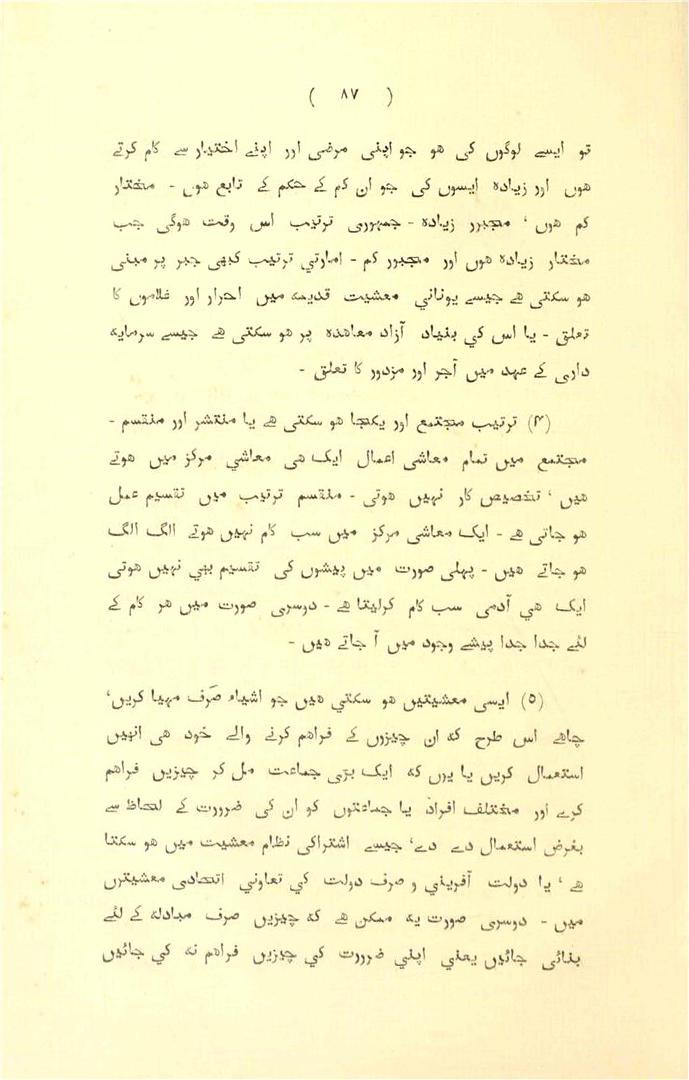 ( ۸۷ )
تو ایسے لوگوں کی ھو جو اپنی مرضی اور اپنے اختیار سے کام کرتے
ھوں اور زیادہ ایسوں کی جو ان کم کے حکم کے تابع ھوں - مختار
کم ھوں ، مجبور زیادہ - جمہوری ترتیب اس وقت ھوگی جب
مختار زیادہ ھوں اور مجبور کم - امارتي ترتیب کبھی جبر پر مبنی
ھو سکتی ھے جیسے یوناني معشیت قدیمہ میں احرار اور غلاموں کا
تعلق - یا اس کي بنیاد آزاد معاھدہ پر ھو سکتی ھے جیسے سرمایہ
داری کے عہد میں آجر اور مزدور کا تعلق -
(۴) ترتیب مجتمع اور یکجا ھو سکتی ھے یا منتشر اور منقسم -
مجتمع میں تمام معاشی اعمال ایک ھی معاشي مرکز میں ھوتے
ھیں ، تخصیص کار نہیں ھوتی - منقسم ترتیب میں تقسیم عمل
ھو جاتی ھے - ایک معاشی مرکز میں سب کام نہیں ھوتے الگ الگ
ھو جاتے ھیں - پہلی صورت میں پیشوں کی تقسیم بھي نہیں ھوتی
ایک ھي آدمی سب کام کرلیتا ھے - دوسری صورت میں ھر کام کے
لئے جدا جدا پیشے وجود میں آ جاتے ھیں -
(۵) ایسی معشیتیں ھو سکتي ھیں جو اشیاء صَرف مہیا کریں،
چاھے اس طرح کہ ان چیزوں کے فراھم کرنے والے خود ھی انہیں
استعمال کریں یا یوں کہ ایک بڑی جماعت مل کر چیزیں فراھم
کرے اور مختلف افراد یا جماعتوں کو ان کی ضرورت کے لحاظ سے
بغرض استعمال دے دے، جیسے اشتراکی نظام معشیت میں ھو سکتا
ھے ، یا دولت آفریني و صرف دولت کي تعاوني اتحادی معشیتوں
میں - دوسری صورت یہ ممکن ھے کہ چیزیں صرف مبادلہ کے لئے
بنائی جائیں یعني اپني ضرورت کي چیزیں فراھم نہ کي جائیں